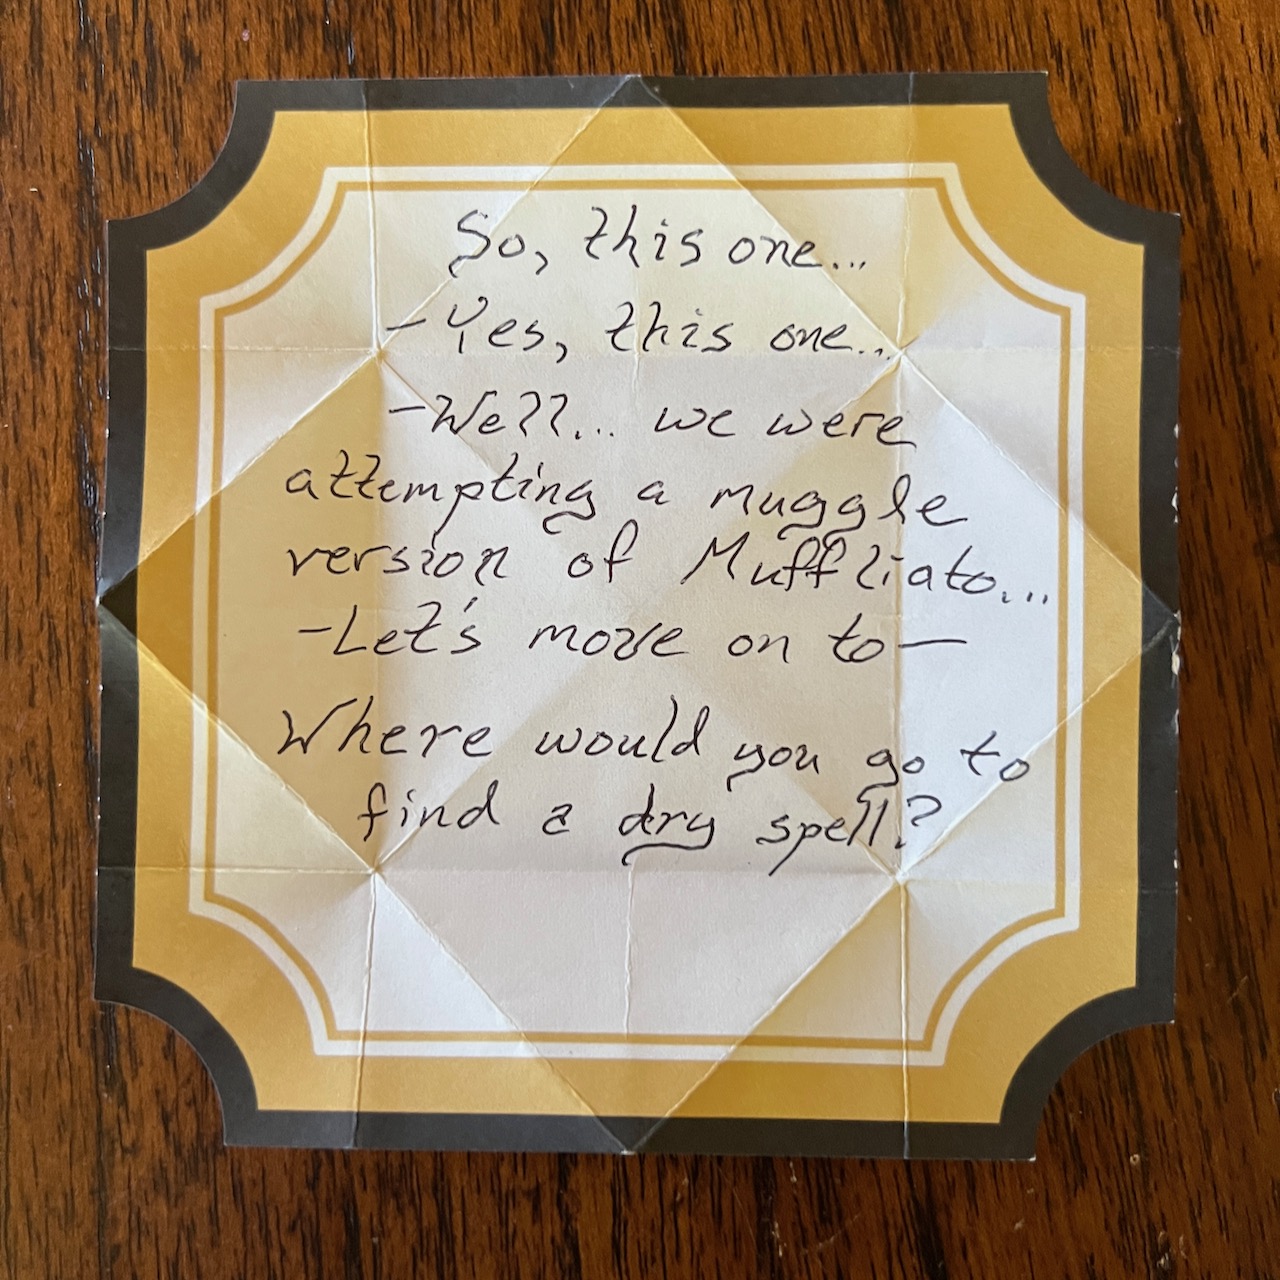 So, this one...
-Yes, this one...
-Well... we were
attempting a muggle
version of Muffliato...
-Let's move on to-
Where would you go to
find a dry spell?